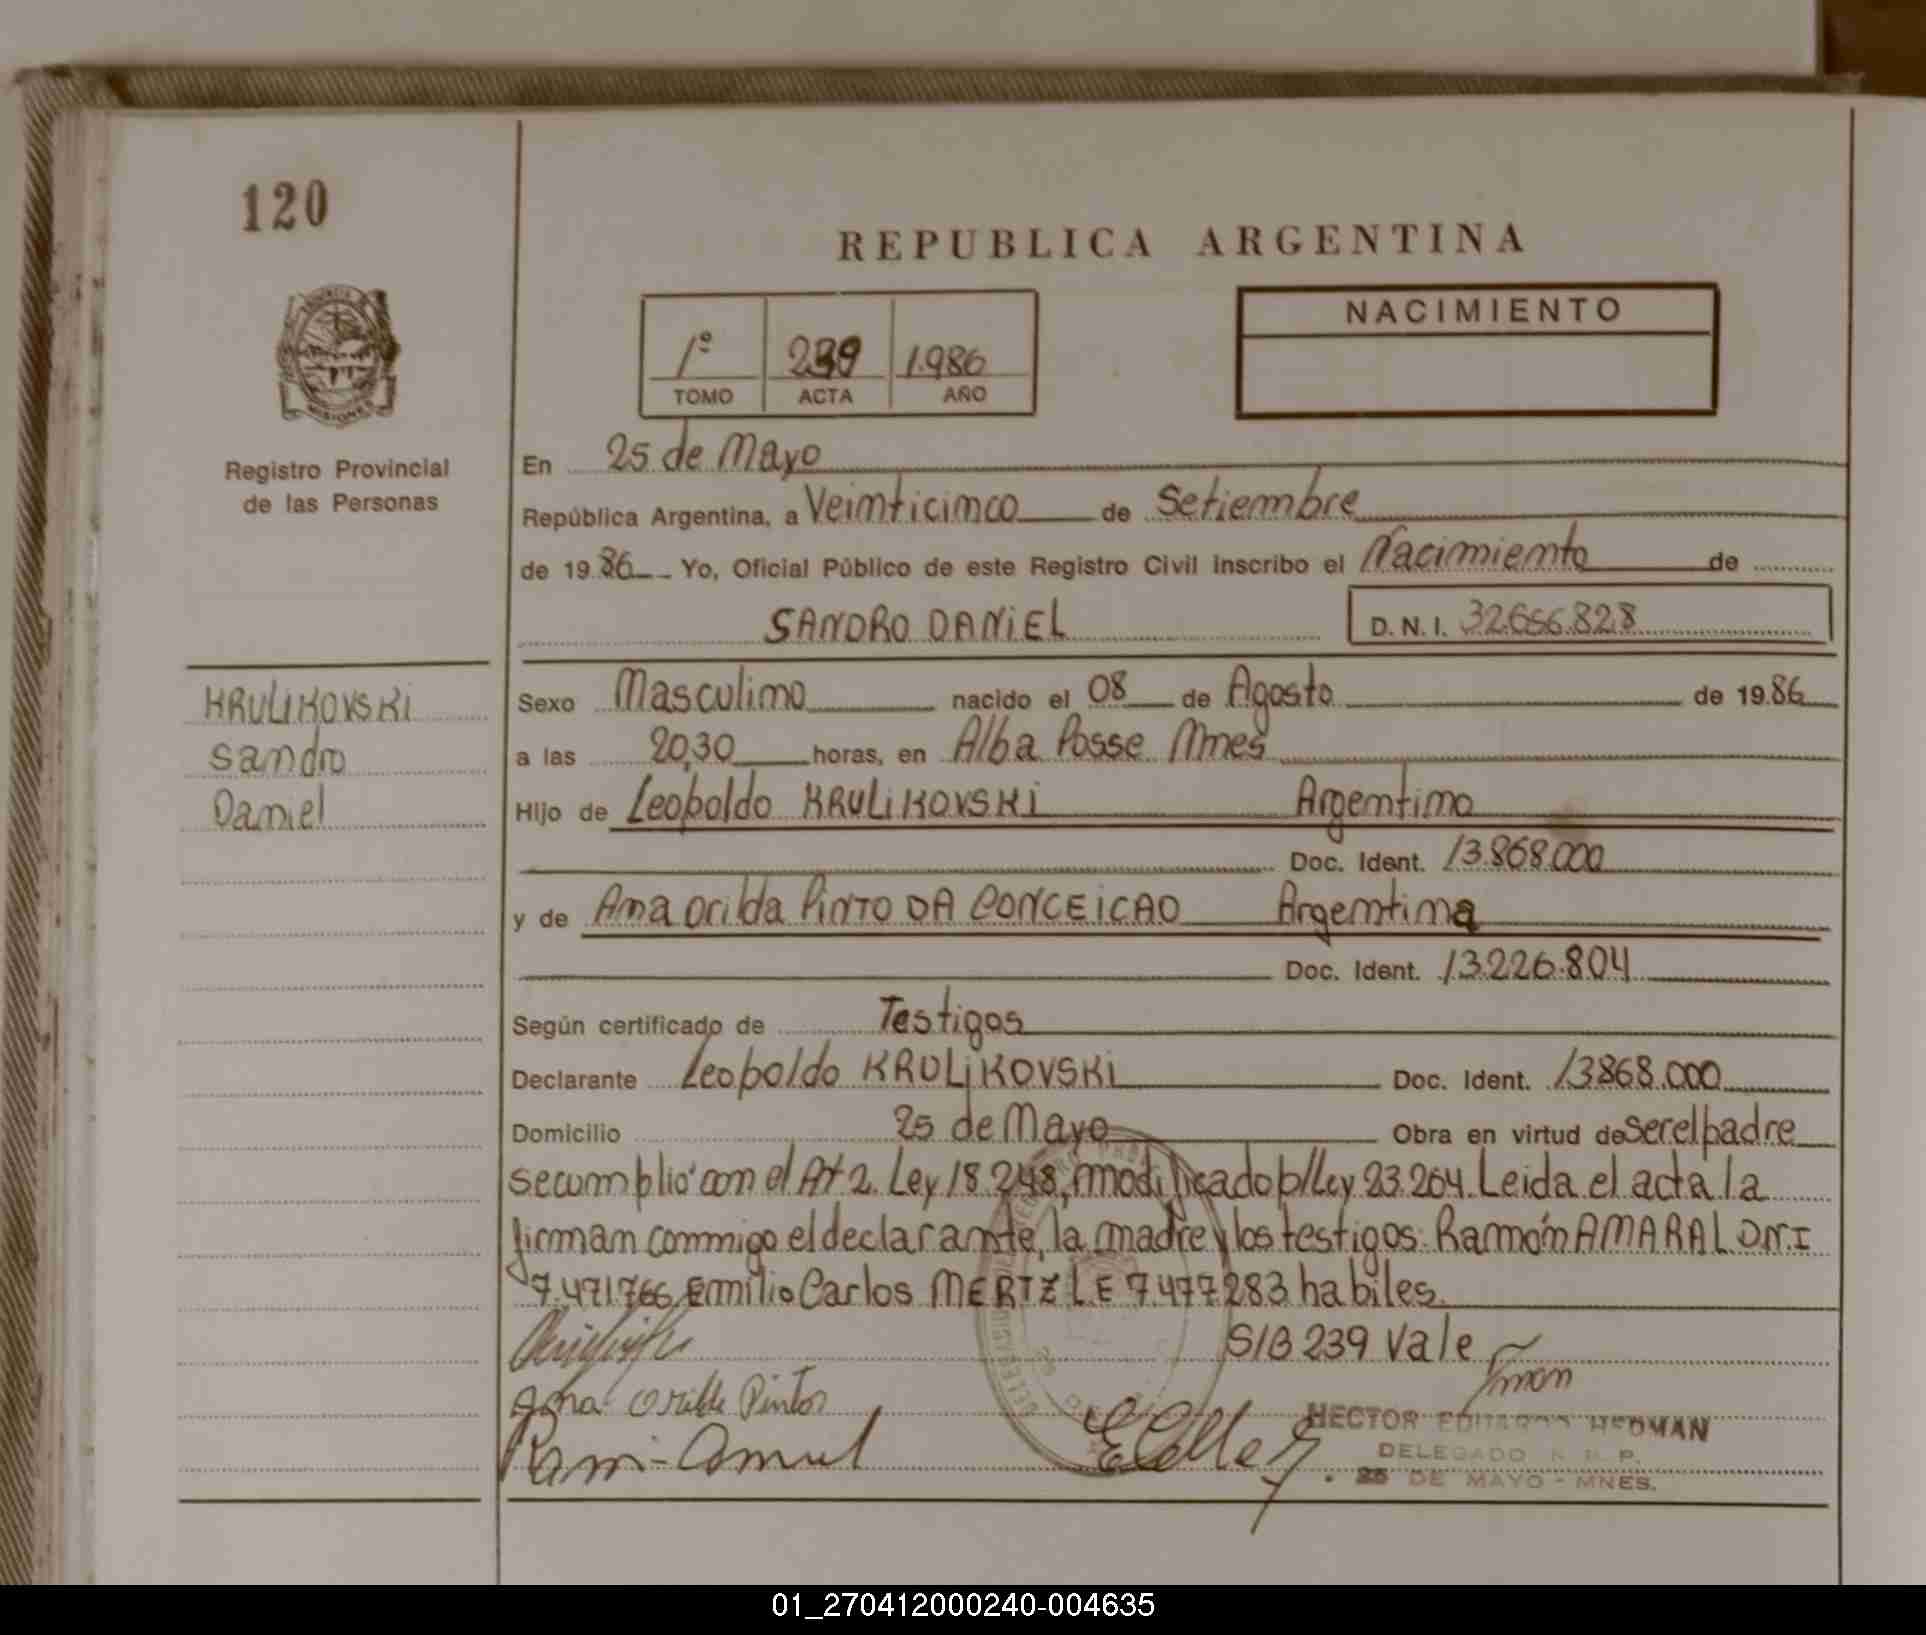 120
REPUBLICA ARGENTINA
1º 239 1.986
TOMO ACTA AÑO
NACIMIENTO
MISIONES
Registro Provincial
de las Personas
En 25 de Mayo
República Argentina, a Veinticinco de Setiembre
de 19 86 Yo, Oficial Público de este Registro Civil inscribo el Nacimiento de
SANDRO DANIEL D. N. I. 32.656.828
KRULIKOVSKI
Sandro
Daniel
Sexo Masculino nacido el 08 de Agosto de 19 86
a las 20,30 horas, en Alba Posse Mnes
Hijo de Leopoldo KRULIKOVSKI Argentino
Doc. Ident. 13.868.000
y de Ana Orilda PINTO DA CONCEICAO Argentina
Doc. Ident. 13.226.804
Según certificado de Testigos
Declarante Leopoldo KRULIKOVSKI Doc. Ident. 13868.000
Domicilio 25 de Mayo Obra en virtud de ser el padre
se cumplió con el Art 2. Ley 18.248, modificado p/Ley 23.264. Leida el acta la
firman conmigo el declarante, la madre y los testigos: Ramón AMARAL D.N.I
7.471.766 Emilio Carlos MERTZ L E 7.477283 habiles.
S/B 239 Vale
Ana Orilde Pinto
HECTOR EDUARDO HEDMAN
DELEGADO R. P. P.
25 DE MAYO - MNES.
01_270412000240-004635